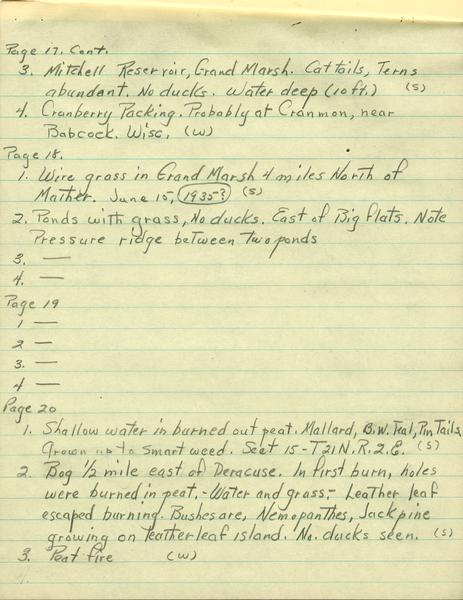 Page 17. Cont.
3. Mitchell Reservoir, Grand Marsh. Cattails, Terns
abundant. No ducks. Water deep (10 ft.) (S)
4. Cranberry Packing. Probably at Cranmon, near
Babcock. Wisc. (W)
Page 18.
1. Wire grass in Grand Marsh 4 miles North of
Mather. June 15, 1935? (S)
2. Ponds with grass, No ducks. East of Big flats. Note
Pressure ridge between two ponds
3. —
4. —
Page 19
1 —
2 —
3. —
4 —
Page 20
1. Shallow water in burned out peat. Mallard, B.W. Teal, Pin Tails
Grown up to smart weed. Sect 15-T21N.R.2.E. (S)
2. Bog 1/2 mile east of Deracuse. In first burn, holes
were burned in peat,- Water and grass;- Leather leaf
escaped burning. Bushes are, Nemopanthes, Jack pine
growing on leatherleaf island. No. ducks seen. (S)
3. Peat fire (W)
4.